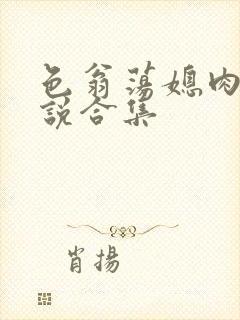 色翁荡媳肉
说合集
肖扬